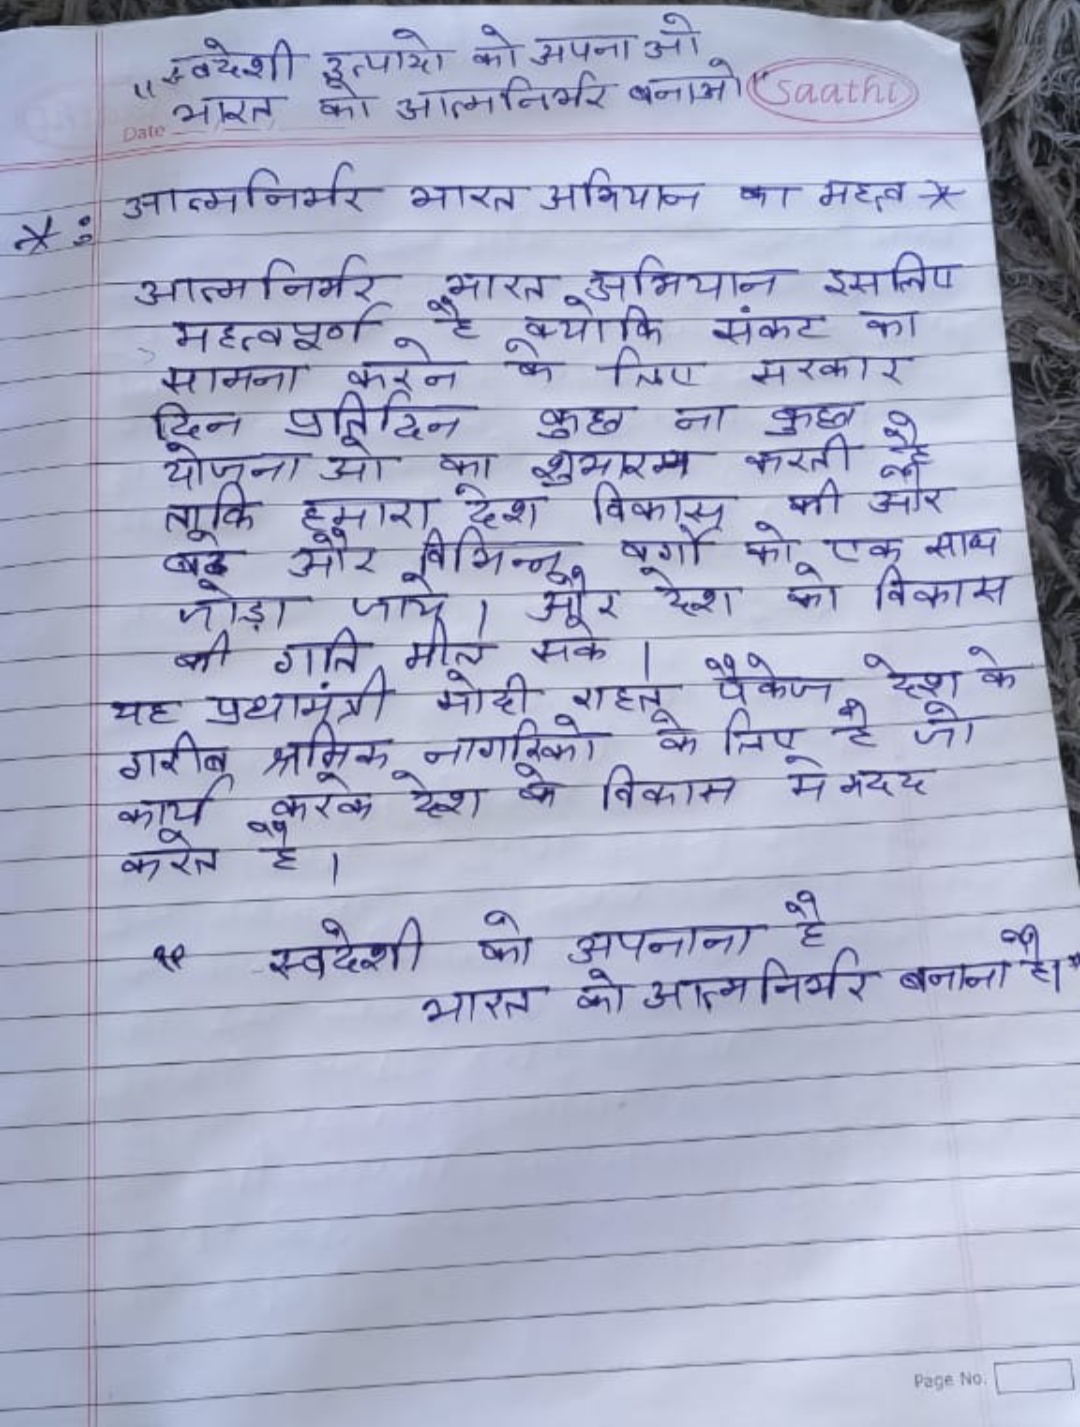 "स्वदेशी उत्पादो को अपनाओ
Saathi
भारत को आत्मनिर्भर बनाओ"
Date
* : आत्मनिर्भर भारत अभियान का महत्व *
आत्मनिर्भर भारत अभियान इसलिए
महत्वपूर्ण है क्योकि संकट का
सामना करने के लिए सरकार
दिन प्रतिदिन कुछ ना कुछ
योजनाओ का शुभारम्भ करती है
ताकि हमारा देश विकास की ओर
बढे और विभिन्न वर्गो को एक साथ
जोड़ा जाये । और देश को विकास
की गति मील सके ।
यह प्रधामंत्री मोदी राहत पैकेज देश के
गरीब श्रमिक नागरिको के लिए है जो
कार्य करके देश के विकास मे मदद
करते है ।
" स्वदेशी को अपनाना है
भारत को आत्मनिर्भर बनाना है।"
Page No.